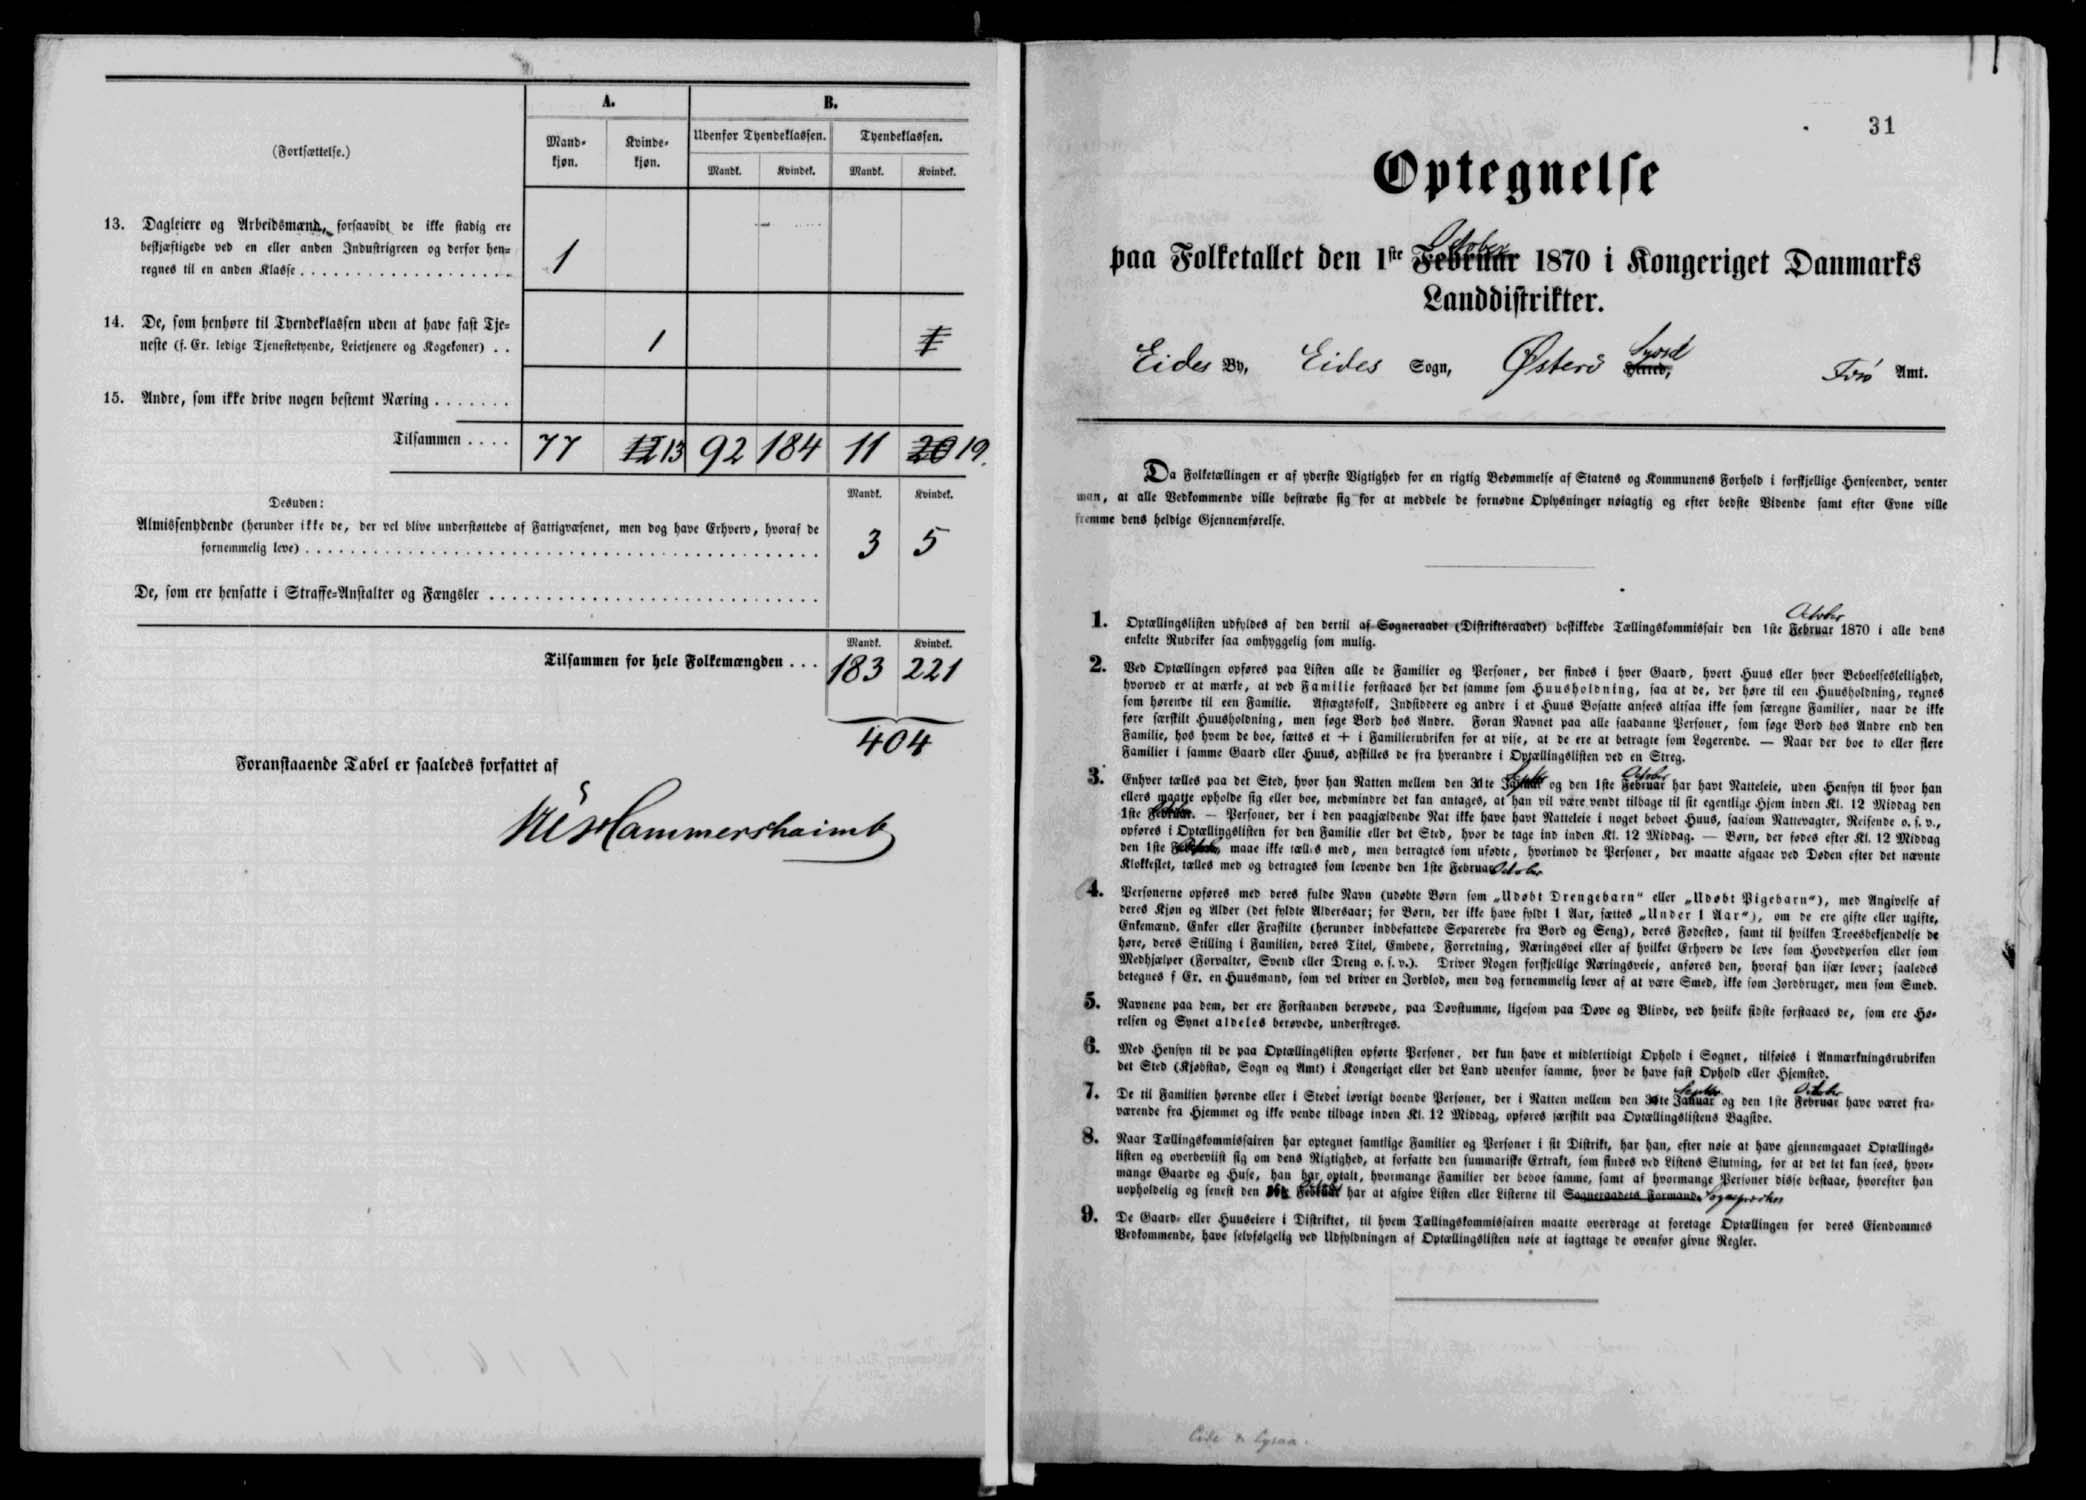 (Fortsættelse.)
A.
B.
Mandkjøn.
Kvindekjøn.
Udenfor Tyendeklassen.
Tyendeklassen.
Mandk.
Kvindek.
Mandk.
Kvindek.
13. Dagleiere og Arbeidsmænd, forsaavidt de ikke stadig ere
beskjæftigede ved en eller anden Industrigreen og derfor hen=
regnes til en anden Klasse . . . 1
14. De, som henhøre til Tyendeklassen uden at have fast Tje=
neste (f. Ex. ledige Tjenestetyende, Leietjenere og Kogekoner) . . 1 1
15. Andre, som ikke drive nogen bestemt Næring . . . . . . .
Tilsammen . . . . 77 12 13 92 184 11 20 19.
Desuden:
Mandk. Kvindek.
Almissenydende (herunder ikke de, der vel blive understøttede af Fattigvæsenet, men dog have Erhverv, hvoraf de
fornemmelig leve) . . . 3 5
De, som ere hensatte i Straffe=Anstalter og Fængsler . . .
Mandk. Kvindek.
Tilsammen for hele Folkemængden . . . 183 221
404
Foranstaaende Tabel er saaledes forfattet af
Hammershaimb
31
Optegnelse
October
paa Folketallet den 1ste Februar 1870 i Kongeriget Danmarks
Landdistrikter.
Eides By, Eides Sogn, Østerö Syssel Herred, Færö Amt.
Da Folketællingen er af yderste Vigtighed for en rigtig Bedømmelse af Statens og Kommunens Forhold i forskjellige Henseender, venter
man, at alle Vedkommende ville bestræbe sig for at meddele de fornødne Oplysninger nøiagtig og efter bedste Vidende samt efter Evne ville
fremme dens heldige Gjennemførelse.
October
1. Optællingslisten udfyldes af den dertil af Sogneraadet (Distriktsraadet) beskikkede Tællingskommissair den 1ste Februar 1870 i alle dens
enkelte Rubriker saa omhyggelig som mulig.
2. Ved Optællingen opføres paa Listen alle de Familier og Personer, der findes i hver Gaard, hvert Huus eller hver Beboelsesleilighed,
hvorved er at mærke, at ved Familie forstaaes her det samme som Huusholdning, saa at de, der høre til een Huusholdning, regnes
som hørende til een Familie. Aftægtsfolk, Indsiddere og andre i et Huus Bosatte ansees altsaa ikke som særegne Familier, naar de ikke
føre særskilt Huusholdning, men søge Bord hos Andre. Foran Navnet paa alle saadanne Personer, som søge Bord hos Andre end den
Familie, hos hvem de boe, sættes et + i Familierubriken for at vise, at de ere at betragte som Logerende. — Naar der boe to eller flere
Familier i samme Gaard eller Huus, adskilles de fra hverandre i Optællingslisten ved en Streg.
Septbr October
3. Enhver tælles paa det Sted, hvor han Natten mellem den 31te Januar og den 1ste Februar har havt Natteleie, uden Hensyn til hvor han
ellers maatte opholde sig eller boe, medmindre det kan antages, at han vil være vendt tilbage til sit egentlige Hjem inden Kl. 12 Middag den
1ste Februar. — Personer, der i den paagjældende Nat ikke have havt Natteleie i noget beboet Huus, saasom Nattevagter, Reisende o. s. v.,
opføres i Optællingslisten for den Familie eller det Sted, hvor de tage ind inden Kl. 12 Middag. — Børn, der fødes efter Kl. 12 Middag
den 1ste October maae ikke tælles med, men betragtes som ufødte, hvorimod de Personer, der maatte afgaae ved Døden efter det nævnte
Klokkeslet, tælles med og betragtes som levende den 1ste Februar October
4. Personerne opføres med deres fulde Navn (udøbte Børn som „Udøbt Drengebarn“ eller „Udøbt Pigebarn“), med Angivelse af
deres Kjøn og Alder (det fyldte Aldersaar; for Børn, der ikke have fyldt 1 Aar, sættes „Under 1 Aar“), om de ere gifte eller ugifte,
Enkemænd, Enker eller Fraskilte (herunder indbefattede Separerede fra Bord og Seng), deres Fødested, samt til hvilken Troesbekjendelse de
høre, deres Stilling i Familien, deres Titel, Embede, Forretning, Næringsvei eller af hvilket Erhverv de leve som Hovedperson eller som
Medhjælper (Forvalter, Svend eller Dreng o. s. v.). Driver Nogen forskjellige Næringsveie, anføres den, hvoraf han især lever; saaledes
betegnes f Ex. en Huusmand, som vel driver en Jordlod, men dog fornemmelig lever af at være Smed, ikke som Jordbruger, men som Smed.
5. Navnene paa dem, der ere Forstanden berøvede, paa Døvstumme, ligesom paa Døve og Blinde, ved hvilke sidste forstaaes de, som ere Hø=
relsen og Synet aldeles berøvede, understreges.
6. Med Hensyn til de paa Optællingslisten opførte Personer, der kun have et midlertidigt Ophold i Sognet, tilføies i Anmærkningsrubriken
det Sted (Kjøbstad, Sogn og Amt) i Kongeriget eller det Land udenfor samme, hvor de have fast Ophold eller Hjemsted.
Septbr October
7. De til Familien hørende eller i Stedet iøvrigt boende Personer, der i Natten mellem den 31te Januar og den 1ste Februar have været fra=
værende fra Hjemmet og ikke vende tilbage inden Kl. 12 Middag, opføres særskilt paa Optællingslistens Bagside.
8. Naar Tællingskommissairen har optegnet samtlige Familier og Personer i sit Distrikt, har han, efter nøie at have gjennemgaaet Optællings=
listen og overbeviist sig om dens Rigtighed, at forfatte den summariske Extrakt, som findes ved Listens Slutning, for at det let kan sees, hvor=
mange Gaarde og Huse, han har optalt, hvormange Familier der beboe samme, samt af hvormange Personer disse bestaae, hvorefter han
uopholdelig og senest den Februar har at afgive Listen eller Listerne til Sogneraadets Formand. Sognepræsten
9. De Gaard= eller Huuseiere i Distriktet, til hvem Tællingskommissairen maatte overdrage at foretage Optællingen for deres Eiendommes
Vedkommende, have selvfølgelig ved Udfyldningen af Optællingslisten nøie at iagttage de ovenfor givne Regler.